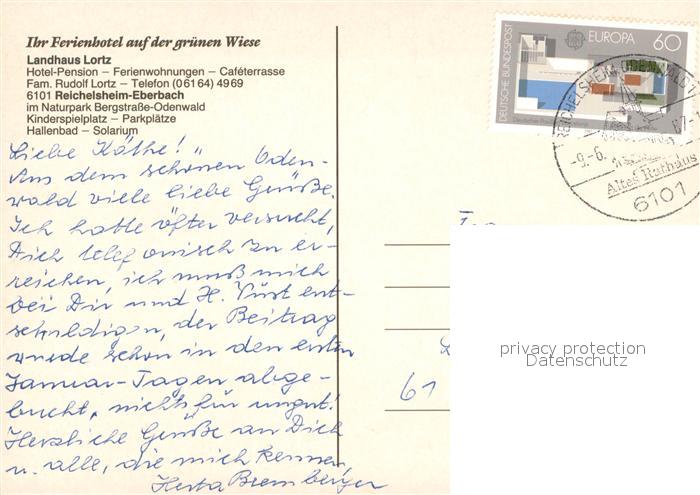 Ihr Ferienhotel auf der grünen Wiese
Landhaus Lortz
Hotel-Pension – Ferienwohnungen – Caféterrasse
Fam. Rudolf Lortz – Telefon (0 61 64) 49 69
6101 Reichelsheim-Eberbach
im Naturpark Bergstraße-Odenwald
Kinderspielplatz – Parkplätze
Hallenbad – Solarium
Liebe Käthe!
Aus dem schönen Oden-
wald viele liebe Grüße.
Ich hatte öfter versucht,
Dich telefonisch zu er-
reichen, ich muß mich
bei Dir und H. Vüst ent-
schuldigen, der Beitrag
wurde schon in den ersten
Januar-Tagen abge-
bucht, nichts für ungut!
Herzliche Grüße an Dich
u. alle, die mich kennen,
Herta Bremberger
DEUTSCHE BUNDESPOST
EUROPA 60
REICHELSHEIM, ODENWALD 1
-9.-6.
Altes Rathaus
6101
61
privacy protection
Datenschutz